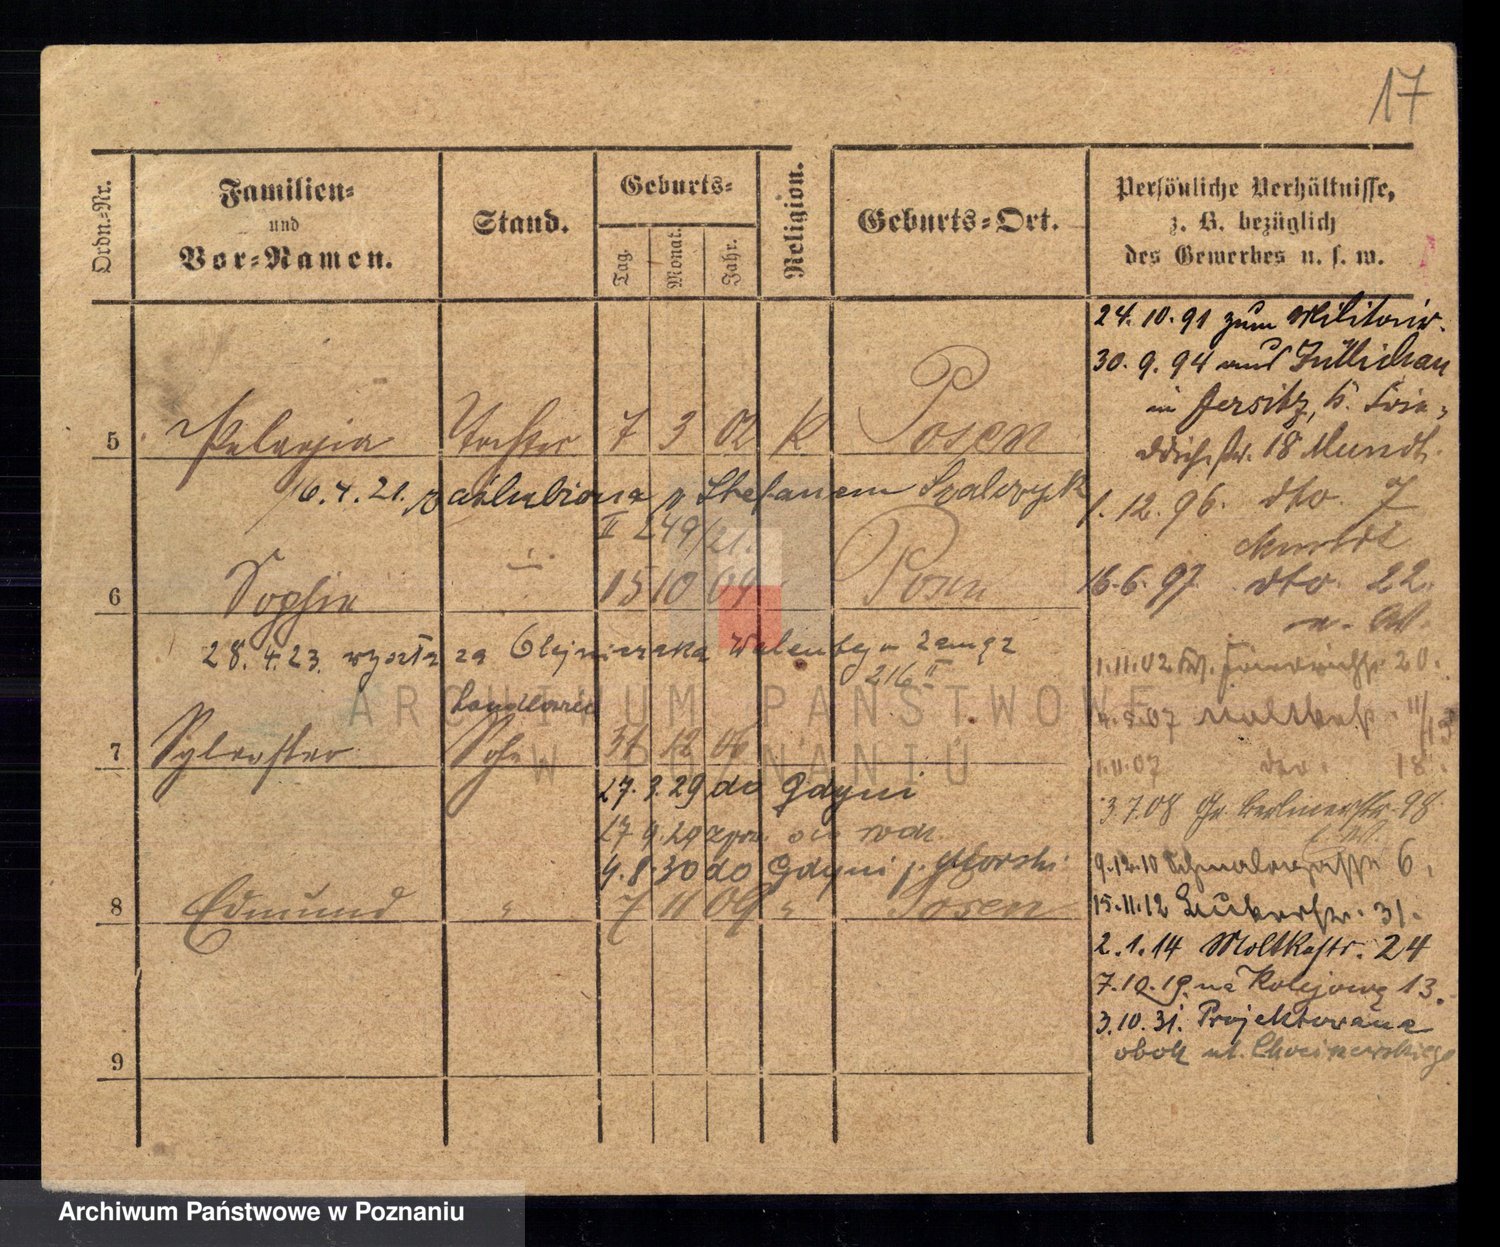 17
Ordn.-Nr.
Familien-
und
Vor-Namen.
Stand.
Geburts-
Tag.
Monat.
Jahr.
Religion.
Geburts-Ort.
Persönliche Verhältnisse,
z. B. bezüglich
des Gewerbes u. s. w.
5 Pelagia Tochter 7 3 02 K Posen
16.4.21. zaślubiona z Stefanem
II 249/21.
6 Sophia 15 10 04 Posen
28.4.23. wyszła za Olejniczaka Walentego
216 II
handlowiec
7 Sylvester Sohn 31 12 06
27.9.29 do Gdyni
17 9.29
4.8.30 do Gdyni
8 Edmund " 7 11 09 " Posen
9
24.10.91 zum Militair.
30.9.94 aus Züllichau
in Jersitz, b. Frie-
drichstr. 18 Mundt.
1.12.96. dto. 7
Mundt
16.6.97 dto. 22
1.11.02 Friedrichstr. 20.
07 Moltkestr.
1.11.07 dto. 18.
3.7.08 Gr. Berlinerstr. 98
9.12.10 6.
15.11.12 31.
2.1.14 Moltkestr. 24
7.10.19. na Kolejową 13.
3.10.31. Projektowana
obok ul.
ARCHIWUM PAŃSTWOWE
W POZNANIU
Archiwum Państwowe w Poznaniu